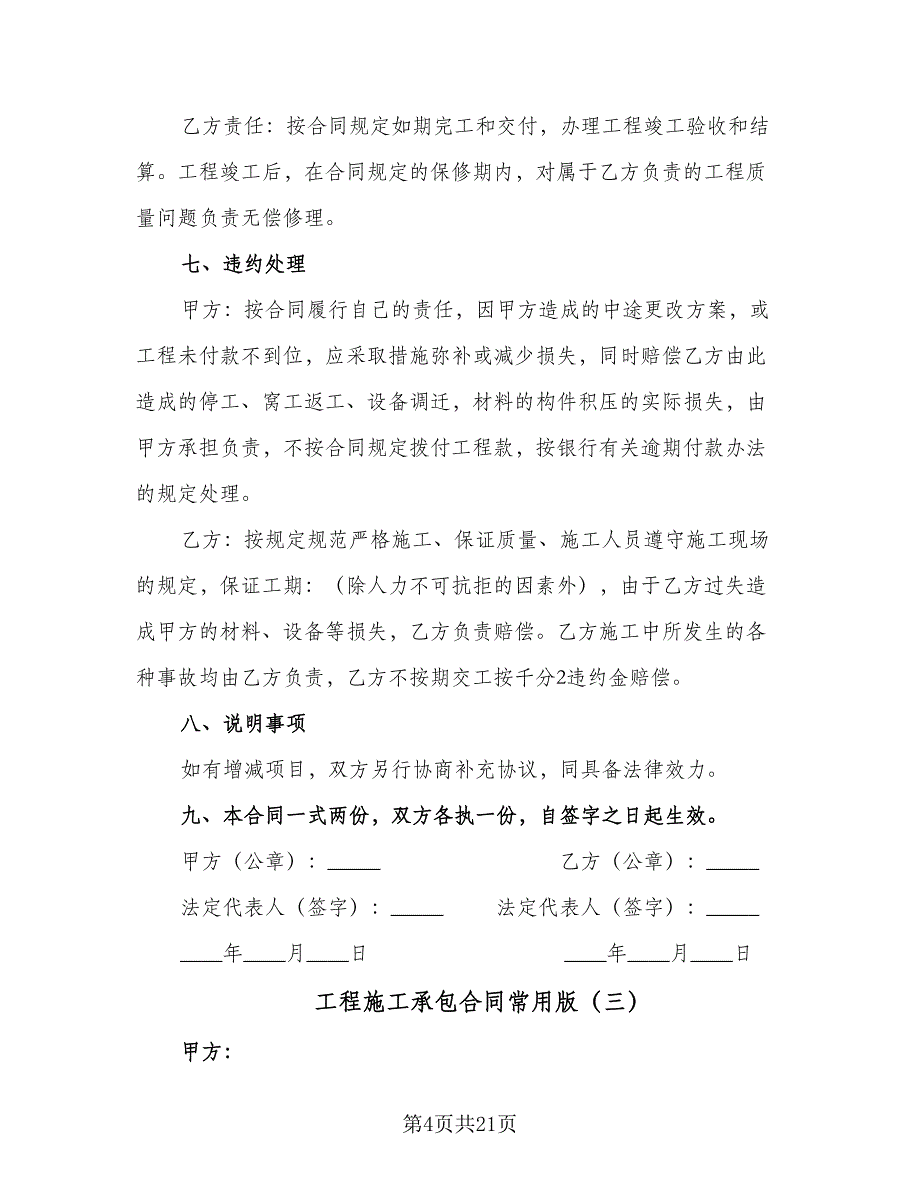 乙方责任：按合同规定如期完工和交付，办理工程竣工验收和结
算。工程竣工后，在合同规定的保修期内，对属于乙方负责的工程质
量问题负责无偿修理。
七、违约处理
甲方：按合同履行自己的责任，因甲方造成的中途更改方案，或
工程未付款不到位，应采取措施弥补或减少损失，同时赔偿乙方由此
造成的停工、窝工返工、设备调迁，材料的构件积压的实际损失，由
甲方承担负责，不按合同规定拨付工程款，按银行有关逾期付款办法
的规定处理。
乙方：按规定规范严格施工、保证质量、施工人员遵守施工现场
的规定，保证工期：（除人力不可抗拒的因素外），由于乙方过失造
成甲方的材料、设备等损失，乙方负责赔偿。乙方施工中所发生的各
种事故均由乙方负责，乙方不按期交工按千分2违约金赔偿。
八、说明事项
如有增减项目，双方另行协商补充协议，同具备法律效力。
九、本合同一式两份，双方各执一份，自签字之日起生效。
甲方（公章）：_____ 乙方（公章）：_____
法定代表人（签字）：_____ 法定代表人（签字）：_____
____年____月____日 ____年____月____日
工程施工承包合同常用版（三）
甲方：
第4页共21页